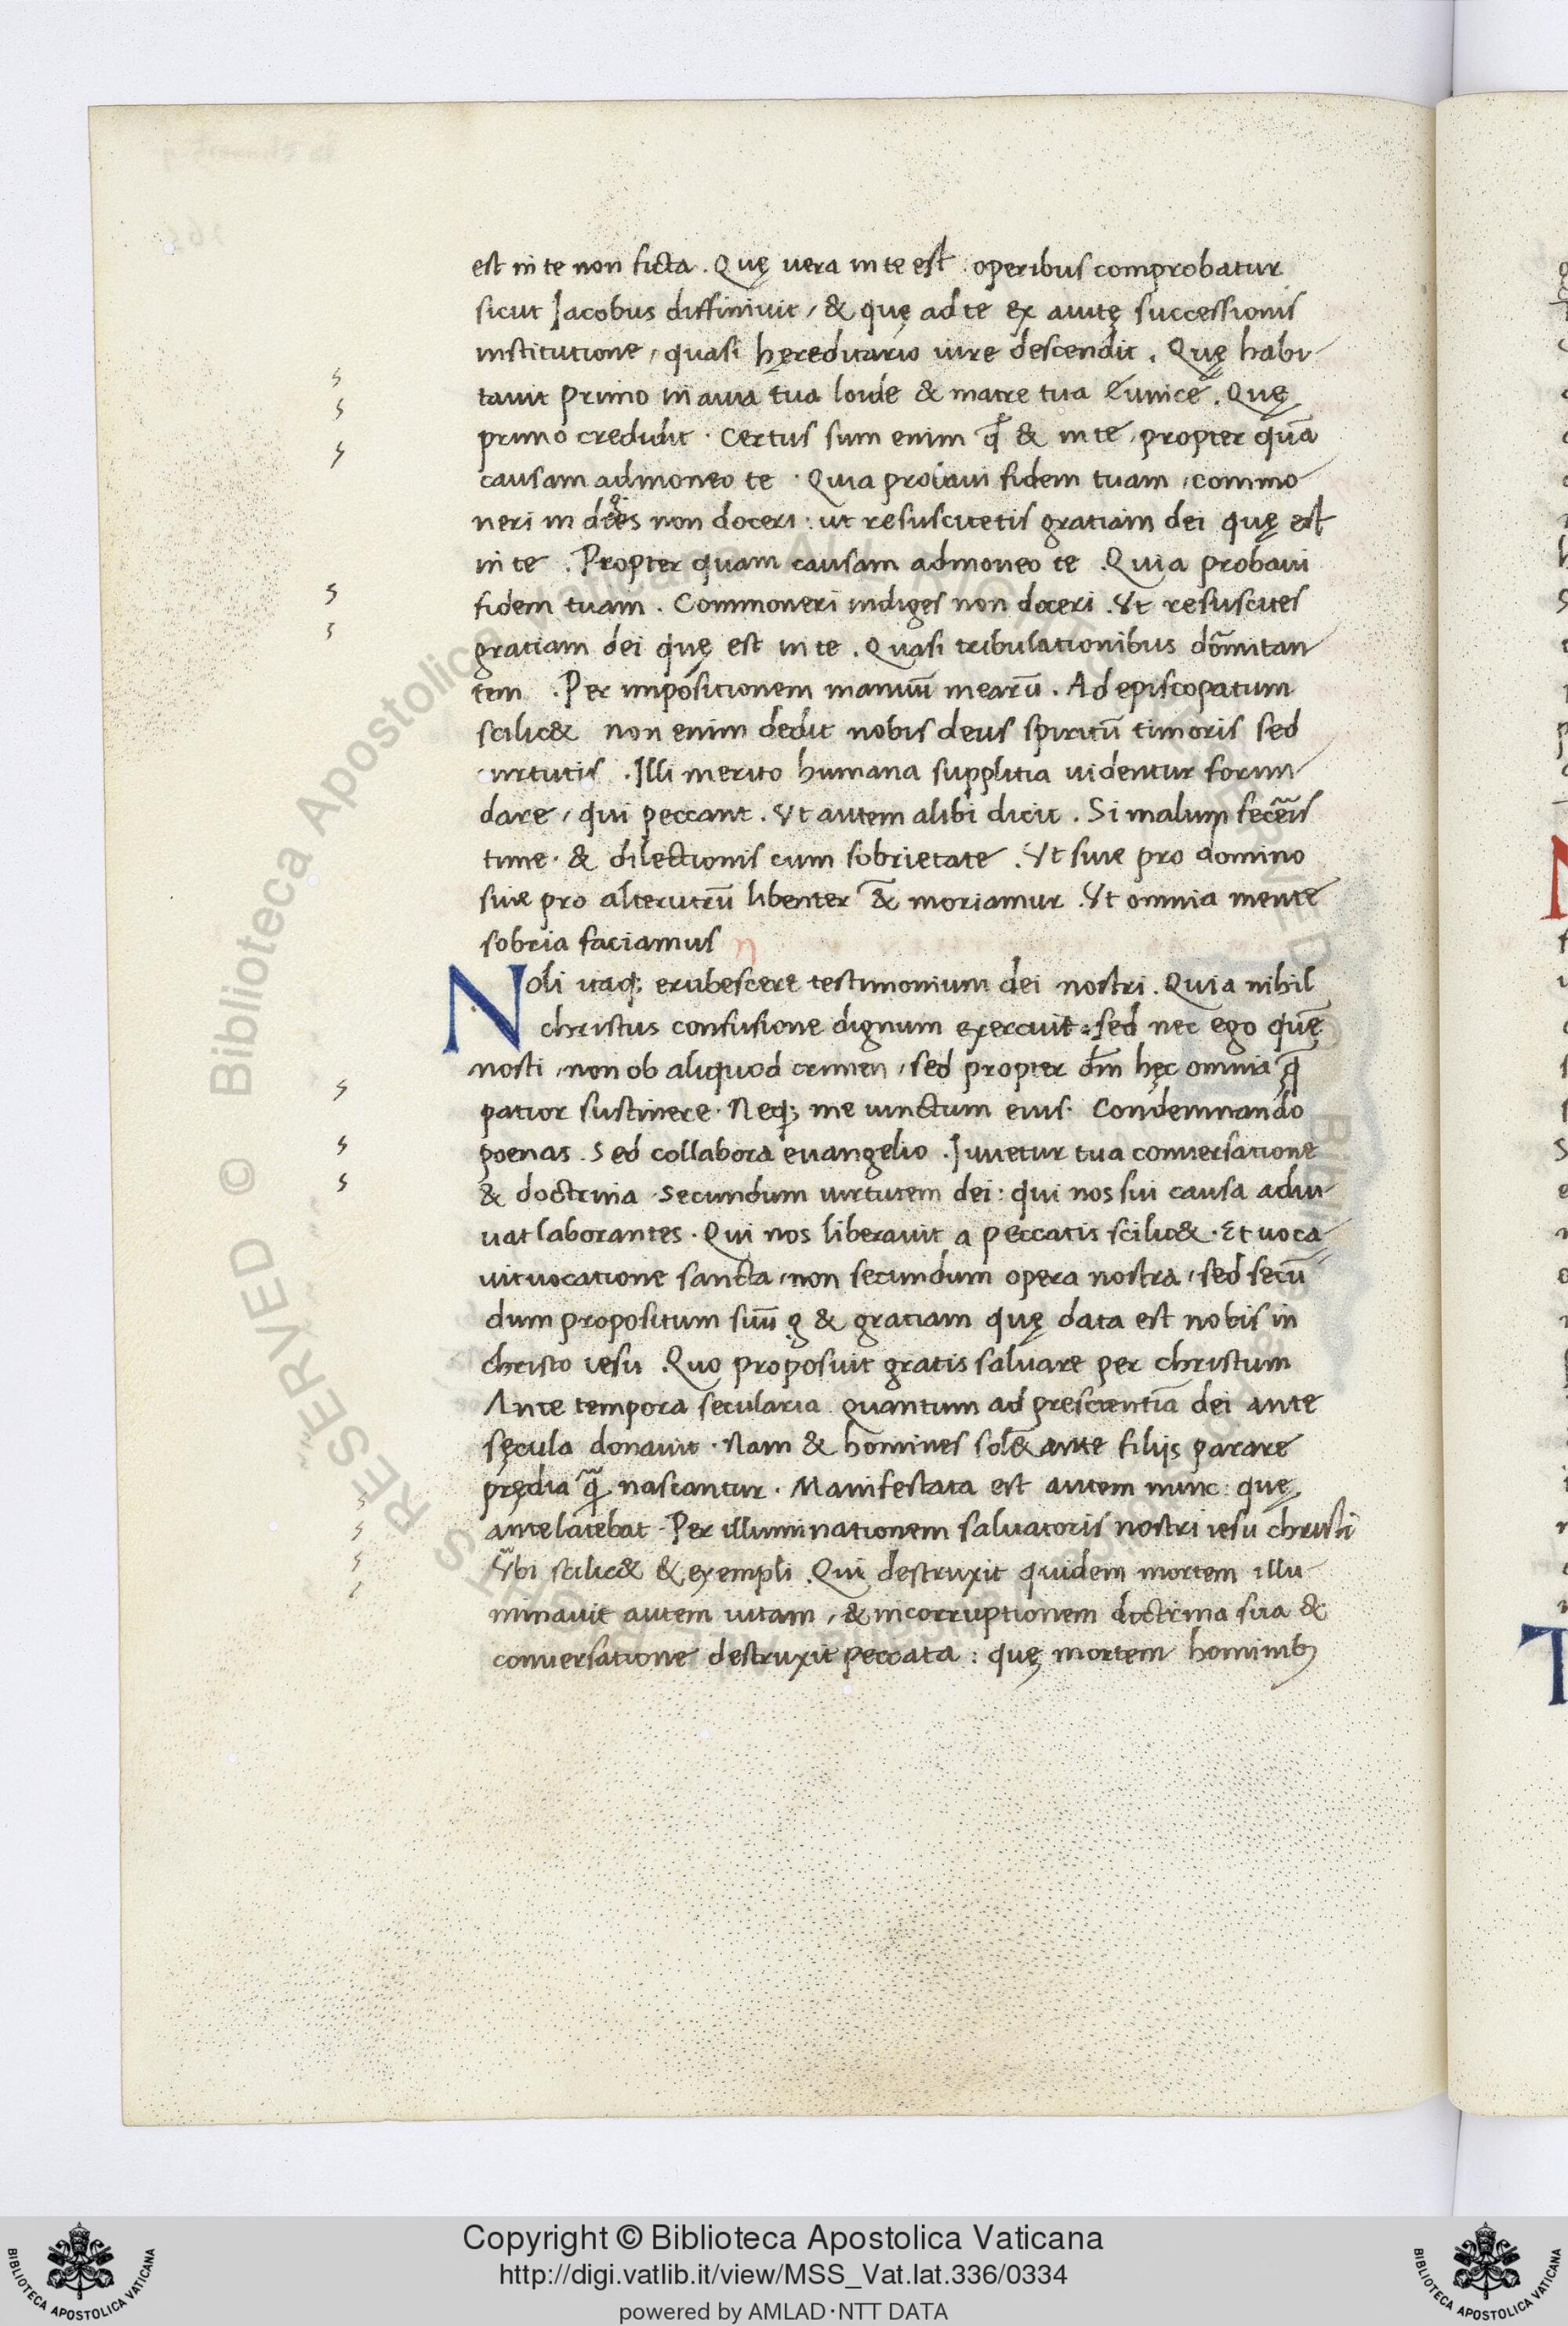 est in te non ficta . Quę uera in te est . operibus comprobatur
sicut Jacobus diffiniuit , & quę ad te ex auitę successionis
institutione , quasi hęreditario iure descendit . Quę habi
tauit primo in auia tua loide & matre tua Eunice . Quę
primo credidit . Certus sum enim & in te , propter quā
causam admoneo te . Quia probaui fidem tuam , commo
neri in non doceri : ut resuscitetis gratiam dei quę est
in te . Propter quam causam admoneo te . Quia probaui
fidem tuam . Commoneri indiges non doceri . Vt resuscites
gratiam dei quę est in te . Quasi tribulationibus dormitan
tem . Per impositionem manuū mearū . Ad episcopatum
scilic& non enim dedit nobis deus spiritū timoris sed
uirtutis . Illi merito humana supplitia uidentur formi
dare , qui peccant . Vt autem alibi dicit . Si malum feceris
time . & dilectionis cum sobrietate . Vt siue pro domino
siue pro alterutrū libenter & moriamur . Vt omnia mente
sobria faciamus
Noli itaq; erubescere testimonium dei nostri . Quia nihil
christus confusione dignum exercuit : sed nec ego quę
nosti , non ob aliquod crimen , sed propter dm̄ hęc omnia
patior sustinere . Neq; me uinctum eius . Condemnando
poenas . Sed collabora euangelio . Iuuetur tua conuersatione
& doctrina . Secundum uirtutem dei : qui nos sui causa adiu
uat laborantes . Qui nos liberauit a peccatis scilic& . Et uoca
uit uocatione sancta , non secundum opera nostra , sed secū
dum propositum suū g & gratiam quę data est nobis in
christo iesu . Quo proposuit gratis saluare per christum
Ante tempora secularia . quantum ad prescientiā dei ante
sęcula donauit . Nam & homines sol& ante filijs parare
prędia nascantur . Manifestata est autem nunc : quę
ante latebat . Per illuminationem saluatoris nostri iesu christi
scilic& & exempli . Qui destruxit quidem mortem illu
minauit autem uitam , & incorruptionem doctrina sua &
conuersatione destruxit peccata : quę mortem hominib;
Copyright © Biblioteca Apostolica Vaticana
http://digi.vatlib.it/view/MSS_Vat.lat.336/0334
powered by AMLAD·NTT DATA